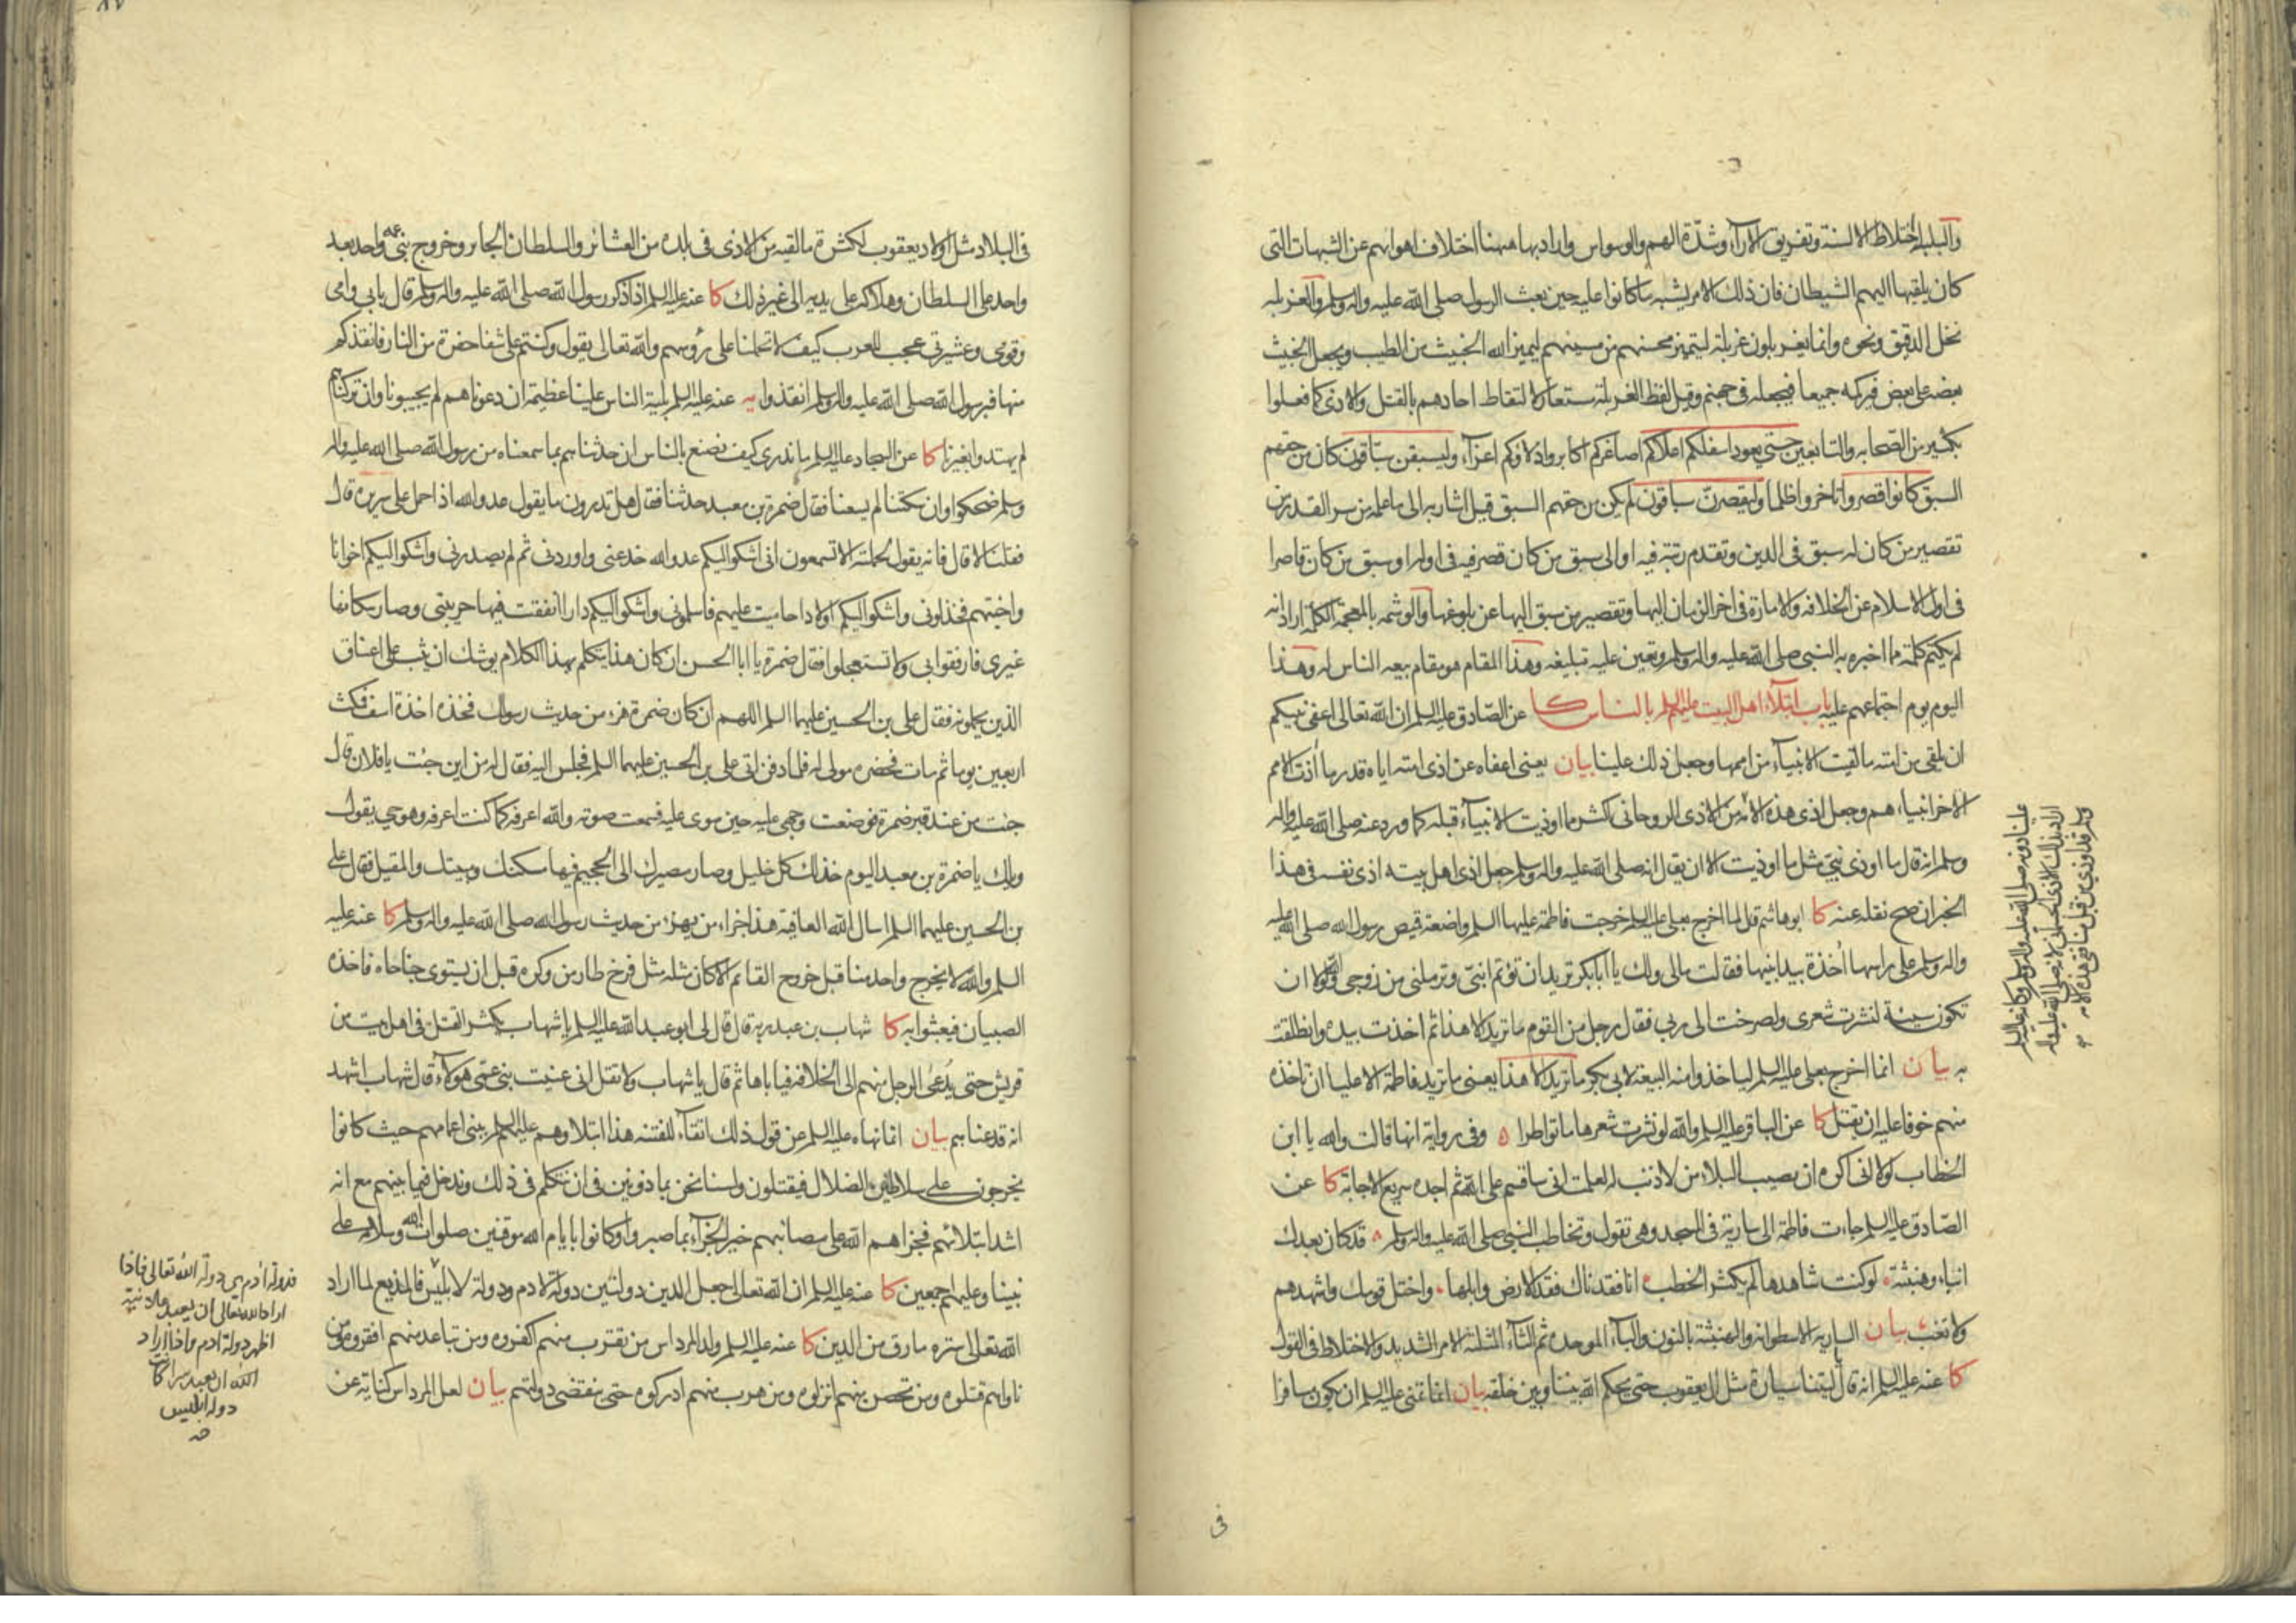 والبلبلة اختلاط الالسنة وتفريق الآراء وشدّة الهم والوسواس واراد بها ههنا اختلاف اهوائهم عن الشبهات التى
كان يلقيها اليهم الشيطان فان ذلك الامر يشبه ما كانوا عليه حين بعث الرسول صلى الله عليه واله وسلم والغربلة
نخل الدقيق ونحوه وانما يغربلون غربلة ليتميز محسنهم من مسيئهم ليميز الله الخبيث من الطيب ويجعل الخبيث
بعضه على بعض فيركمه جميعا فيجعله فى جهنم وقيل لفظ الغربلة مستعار لالتقاط احادهم بالقتل والاذى كما فعلوا
بكثير من الصحابه والتابعين حتى يعود اسفلكم اعلاكم اصاغركم اكابر واذلاؤكم اعزاء وليسبقن سباقون كان من حقهم
السبق كانوا قصروا تاخروا ظلما وليقصرن سباقون لم يكن من حقهم السبق قيل اشار به الى ما علمه من سر القدر من
تقصير من كان له سبق فى الدين وتقدم رتبة فيه او الى سبق من كان قصر فيه فى اوله او سبق من كان قاصرا
فى اول الاسلام عن الخلافه والامارة فى اخر الزمان اليها وتقصير من سبق اليها عن بلوغها والوشمه بالمعجمة الكلمة اراد انه
لم يكتم كلمة مما اخبره به النبى صلى الله عليه واله وسلم وتعين عليه تبليغه وهذا المقام هو مقام بيعه الناس له وهذا
اليوم يوم اجتماعهم عليه باب ابتلاء اهل البيت عليهم السلم بالناس كا عن الصادق عليه السلم ان الله تعالى اعفى نبيكم
ان يلقى من امته ما لقيت الانبياء من اممها وجعل ذلك علينا بيان يعنى اعفاه عن اذى امته اياه قدر ما أذت الامم
الاخر انبياءهم وجعل اذى هذه الامة من الاذى الروحانى اكثر مما اوذيت الانبياء قبله كما ورد عنه صلى الله عليه واله
وسلم انه قال ما اوذى نبىّ مثل ما اوذيت الا ان يقال انه صلى الله عليه واله وسلم جعل اذى اهل بيته اذى نفسه فى هذا
الخبر ان صح نقله عنه كا ابو هاشم قال لما اخرج بعلى عليه السلم خرجت فاطمة عليها السلم واضعة قميص رسول الله صلى الله عليه
واله وسلم على راسها أخذة بيد ابنيها فقالت مالى ولك يا ابا بكر تريد ان تؤتم ابنىّ وترملنى من زوجى والله لولا ان
تكون سيئة لنشرت شعرى ولصرخت الى ربى فقال رجل من القوم ما تريد الا هذا ثم اخذت بيده وانطلقت
به بيان انما اخرج بعلى عليه السلم لياخذوا منه البيعة لابى بكر ما تريد الا هذا يعنى ما تريد فاطمة الا عليا ان تاخذه
منهم خوفا عليه ان يقتل كا عن الباقر عليه السلم والله لو نشرت شعرها ماتوا طرا ٥ وفى رواية انها قالت والله يا ابن
الخطاب لولا انى اكره ان يصيب البلاء من لا ذنب له لعلمت انى ساقسم على الله ثم اجده سريع الاجابة كا عن
الصادق عليه السلم جاءت فاطمة الى سارية فى المسجد وهى تقول وتخاطب النبى صلى الله عليه واله وسلم قد كان بعدك
انباء وهنبثة لو كنت شاهدها لم يكثر الخطب انا فقدناك فقد الارض وابلها واختل قومك واشهدهم
ولا تغب بيان الساريه الاسطوانه والهنبثة بالنون والباء الموحده ثم الثاء المثلثة الامر الشديد والاختلاط فى القول
كا عنه عليه السلم انه قال ليتنا سيارة مثل ال يعقوب حتى يحكم الله بيننا وبين خلقه بيان انما تمنى عليه السلم ان يكون سافرا
فى
فى البلاد مثل اولاد يعقوب لكثرة ما لقيه من الاذى فى بلده من العشائر والسلطان الجائر وخروج بنى عمه واحد بعد
واحد على السلطان وهلاكه على يديه الى غير ذلك كا عنه عليه السلم اذا ذكر رسول الله صلى الله عليه واله وسلم قال بابى وامى
وقومى وعشيرتى عجب للعرب كيف لا تحملنا على رؤسهم والله تعالى يقول وكنتم على شفا حفرة من النار فانقذكم
منها فبرسول الله صلى الله عليه واله وسلم انقذوا يه عنه عليه السلم بلية الناس علينا عظيمة ان دعوناهم لم يجيبونا وان تركناهم
لم يهتدوا بغيرنا كا عن السجاد عليه السلم ما ندرى كيف نصنع بالناس ان حدثناهم بما سمعناه من رسول الله صلى الله عليه واله
وسلم ضحكوا وان سكتنا لم يسعنا فقال ضمرة بن معبد حدثنا فقال هل تدرون ما يقول عدو الله اذا حمل على سريره قال
فقلنا لا قال فانه يقول لحملته الا تسمعون انى اشكو اليكم عدو الله خدعنى واوردنى ثم لم يصدرنى واشكو اليكم اخوانا
واخيتهم فخذلونى واشكو اليكم اولادا حاميت عليهم فاسلمونى واشكو اليكم دارا انفقت فيها حريبتى وصار سكانها
غيرى فارفقوا بى ولا تستعجلوا فقال ضمرة يا ابا الحسن ان كان هذا يتكلم بهذا الكلام يوشك ان يثب على اعناق
الذين يحملونه فقال على بن الحسين عليهما السلم اللهم ان كان ضمرة هزء من حديث رسولك فخذه اخذة اسف فمكث
اربعين يوما ثم مات فحضره مولى له فلما دفن اتى على بن الحسين عليهما السلم فجلس اليه فقال له من اين جئت يا فلان قال
جئت من عند قبر ضمرة فوضعت وجهى عليه حين سوى عليه فسمعت صوته والله اعرفه كما كنت اعرفه وهو حى يقول
ويلك يا ضمرة بن معبد اليوم خذلك كل خليل وصار مصيرك الى الجحيم فيها مسكنك ومبيتك والمقيل فقال على
بن الحسين عليهما السلم اسال الله العافية هذا جزاء من يهزء من حديث رسول الله صلى الله عليه واله وسلم كا عنه عليه
السلم والله لا يخرج واحد منا قبل خروج القائم الا كان مثله مثل فرخ طار من وكره قبل ان يستوى جناحاه فاخذه
الصبيان فعبثوا به كا شهاب بن عبد ربه قال قال لى ابو عبد الله عليه السلم يا شهاب يكثر القتل فى اهل بيت من
قريش حتى يُدعى الرجل منهم الى الخلافة فياباها ثم قال يا شهاب ولا تقل انى عنيت بنى عمّى هؤلاء قال شهاب اشهد
انه قد عناهم بيان انما نهاه عليه السلم عن قول ذلك اتقاء للفتنه هذا ابتلاؤهم عليهم السلم ببنى اعمامهم حيث كانوا
يخرجون على سلاطين الضلال فيقتلون ولسنا نحن بماذونين فى ان نتكلم فى ذلك وندخل فيما بينهم مع انه
اشد ابتلائهم فجزاهم الله على مصائبهم خير الجزاء بما صبروا وكانوا بايام الله موقنين صلوات الله وسلامه على
نبينا وعليهم اجمعين كا عنه عليه السلم ان الله تعالى جعل الدين دولتين دولة لادم ودولة لابليس فالمذيع لما اراد
الله تعالى ستره مارق من الدين كا عنه عليه السلم ولد المرداس من تقرب منهم اكفروه ومن تباعد منهم افقروه ومن
ناواهم قتلوه ومن تحصن منهم انزلوه ومن هرب منهم ادركوه حتى ينقضى دولتهم بيان لعل المرداس كناية عن
فدولة أدم هى دولة الله تعالى فاذا
اراد الله تعالى ان يعبد علانية
اظهر دولة ادم واذا اراد
الله ان يعبد سرا كانت
دولة ابليس